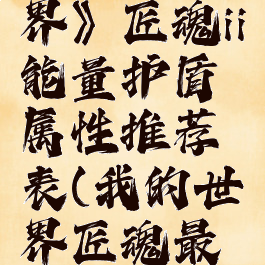 界》匠魂ii
能量护盾
属性推荐
表(我的世
界匠魂最